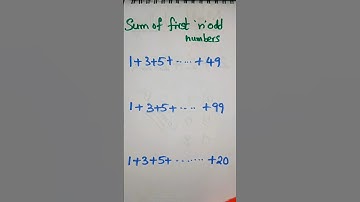 Sum of first 'n' odd
numbers
1+3+5+ ..... +49
1+3+5+ .... +99
1+3+5+ ....... +20